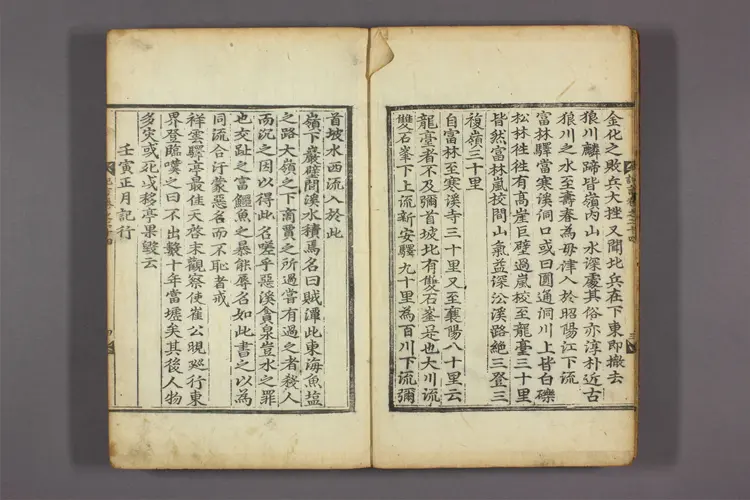 金化之敗兵大挫又聞北兵在下東卽撤去
狼川麟蹄皆嶺內山水深處其俗亦淳朴近古
狼川之水至壽春爲毋津入於昭陽江下流
富林驛當寒溪洞口或曰圓通洞川上皆白礫
松林往往有高崖巨壁過嵐校至龍臺三十里
皆然富林嵐校間山氣益深㳂溪路絶三登三
復嶺三十里
自富林至寒溪寺三十里又至襄陽八十里云
龍臺者不及彌首坡北有雙石峯是也大川流
雙石峯下上流新安驛九十里爲百川下流彌
首坡水西流入於此
嶺下巖壁間溪水積焉名曰賊潭此東海魚塩
之路大嶺之下商賈之所過嘗有過之者殺人
而沉之因以得此名嗟乎惡溪貪泉豈水之罪
也交趾之富鱷魚之暴能辱名如此書之以爲
同流合汙蒙惡名而不恥者戒
祥雲驛亭最佳天啓末觀察使崔公晛廵行東
界登臨嘆之曰不出數十年當墟矣其後人物
多灾或死或移亭果毀云
壬寅正月記行